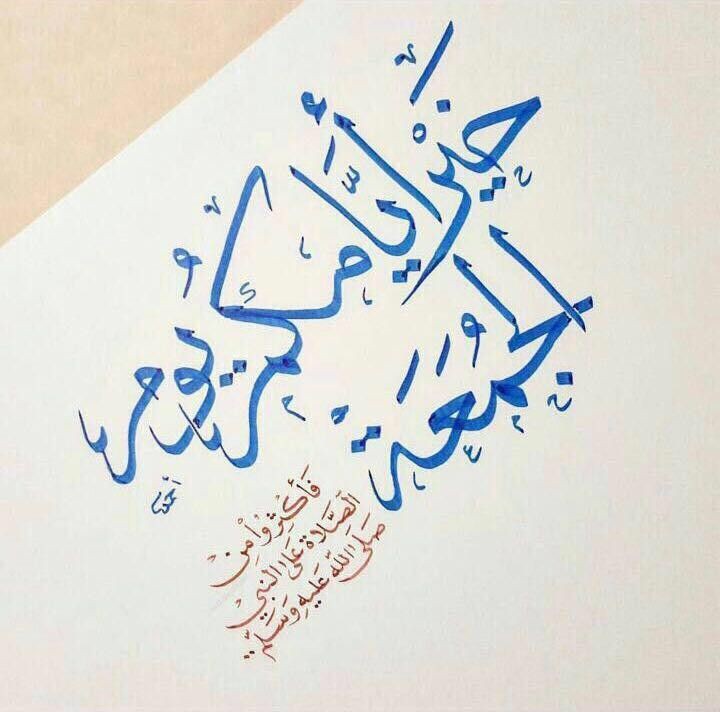 خَيْرُ أَيَّامِكُمْ يَوْمُ
الجُمُعَةِ
فَأَكْثِرُوا مِنْ
الصَّلَاةِ عَلَى النَّبِيِّ
صَلَّى اللَّهُ عَلَيْهِ وَسَلَّمَ..